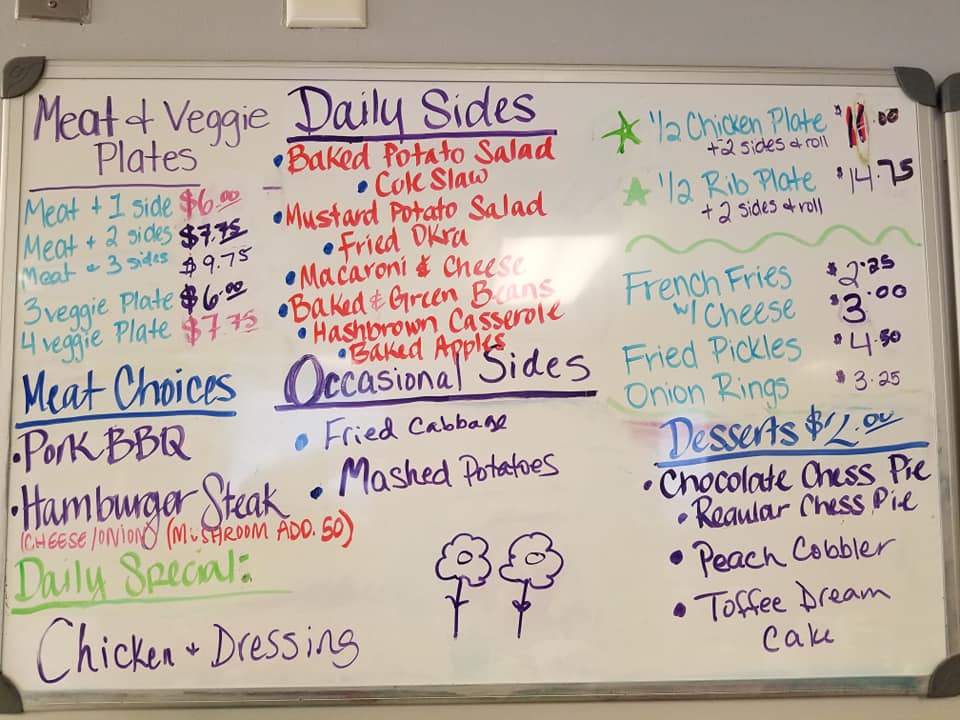 Meat & Veggie
Plates
Meat + 1 side $6.00
Meat + 2 sides $7.75
Meat & 3 sides $9.75
3 veggie Plate $6.00
4 veggie Plate $7.75
Meat Choices
• Pork BBQ
• Hamburger Steak
(CHEESE/ONION) (MUSHROOM ADD .50)
Daily Special:
Chicken + Dressing
Daily Sides
• Baked Potato Salad
• Cole Slaw
• Mustard Potato Salad
• Fried Okra
• Macaroni & Cheese
• Baked & Green Beans
• Hashbrown Casserole
• Baked Apples
Occasional Sides
• Fried Cabbage
• Mashed Potatoes
1/2 Chicken Plate $11.00
+ 2 sides & roll
1/2 Rib Plate $14.75
+ 2 sides & roll
French Fries $2.25
w/ Cheese $3.00
Fried Pickles $4.50
Onion Rings $3.25
Desserts $2.00
• Chocolate Chess Pie
• Regular Chess Pie
• Peach Cobbler
• Toffee Dream
Cake